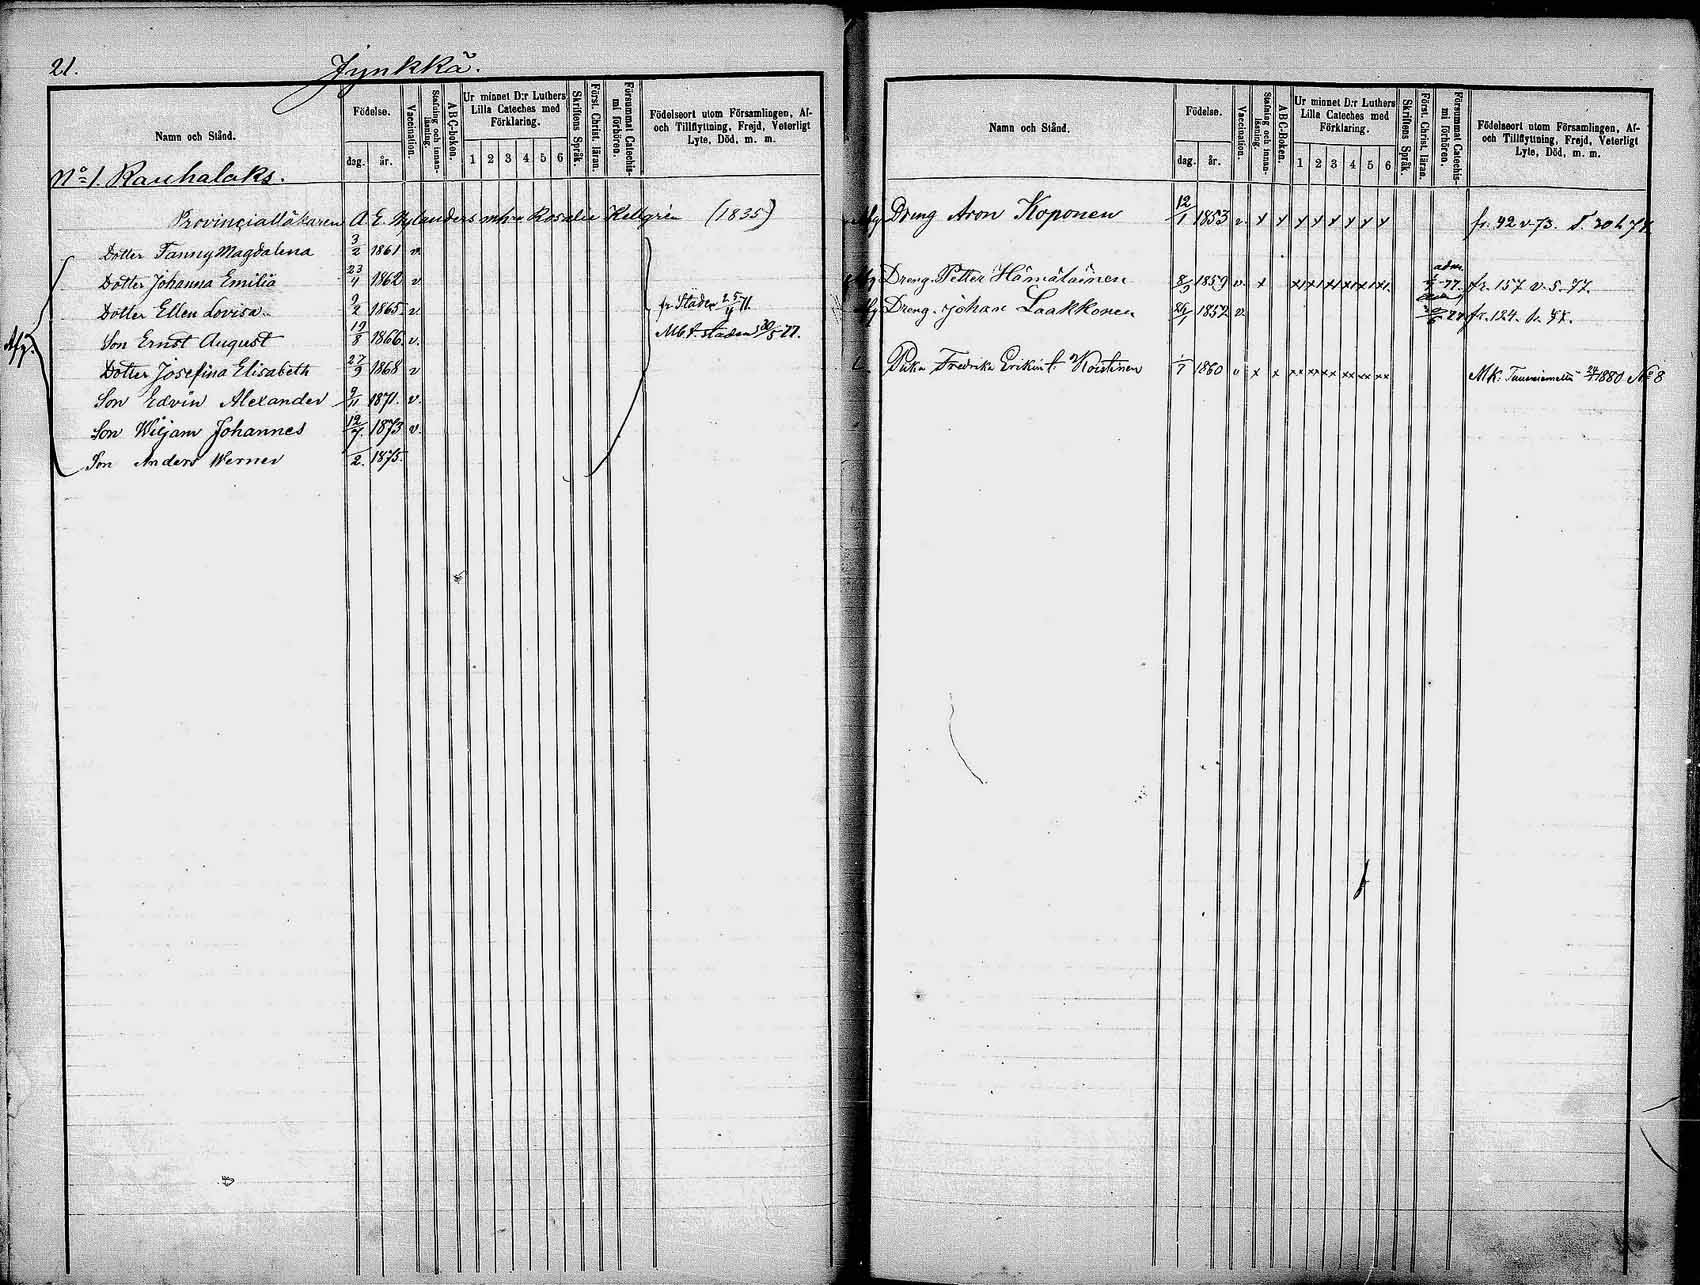 21. Jynkkä.
Namn och Stånd.
Födelse.
dag. år.
Vaccination.
Stafning och innan-
läsning.
ABC-boken.
Ur minnet D:r Luthers
Lilla Cateches med
Förklaring.
1 2 3 4 5 6
Skriftens Språk.
Först. Christ. läran.
Försummat Catechis-
mi förhören.
Födelseort utom Församlingen, Af-
och Tillflyttning, Frejd, Veterligt
Lyte, Död, m. m.
No 1. Rauhalaks.
Provincialläkaren A. E. Nylanders Rosalie Kellgrén (1835)
Dotter Fanny Magdalena 3/2 1861 v.
Dotter Johanna Emilia 23/4 1862 v.
Dotter Ellen Lovisa 9/2 1865 v. fr. Staden 25/4 71.
Son Ernst August 19/8 1866 v. Mb t. staden 30/5 77.
Dotter Josefina Elisabeth 27/9 1868 v
Afg.
Son Edvin Alexander 9/11 1871. v.
Son Wiljam Johannes 12/7 1873 v.
Son Anders Werner /2. 1875.
Namn och Stånd.
Födelse.
dag. år.
Vaccination.
Stafning och innan-
läsning.
ABC-Boken.
Ur minnet D:r Luthers
Lilla Cateches med
Förklaring.
1 2 3 4 5 6
Skriftens Språk.
Först. Christ. läran.
Försummat Catechis-
mi förhören.
Födelseort utom Församlingen, Af-
och Tillflyttning, Frejd, Veterligt
Lyte, Död, m. m.
Afg Dreng Aron Koponen 12/1 1853 v. x x x x x x x x fr. 42 v. 73.
Afg Dreng Petter Hämäläinen 8/9 1859 v. x xx xx xx xx xx xx adm. 77 fr. 157 v. s. 77.
Afg Dreng Johan Laakkonen 26/1 1857 v. fr. 124.
Fredrika Eriksint. Koistinen 1/7 1860 v x x xx xx xx xx xx xx 1880 No 8